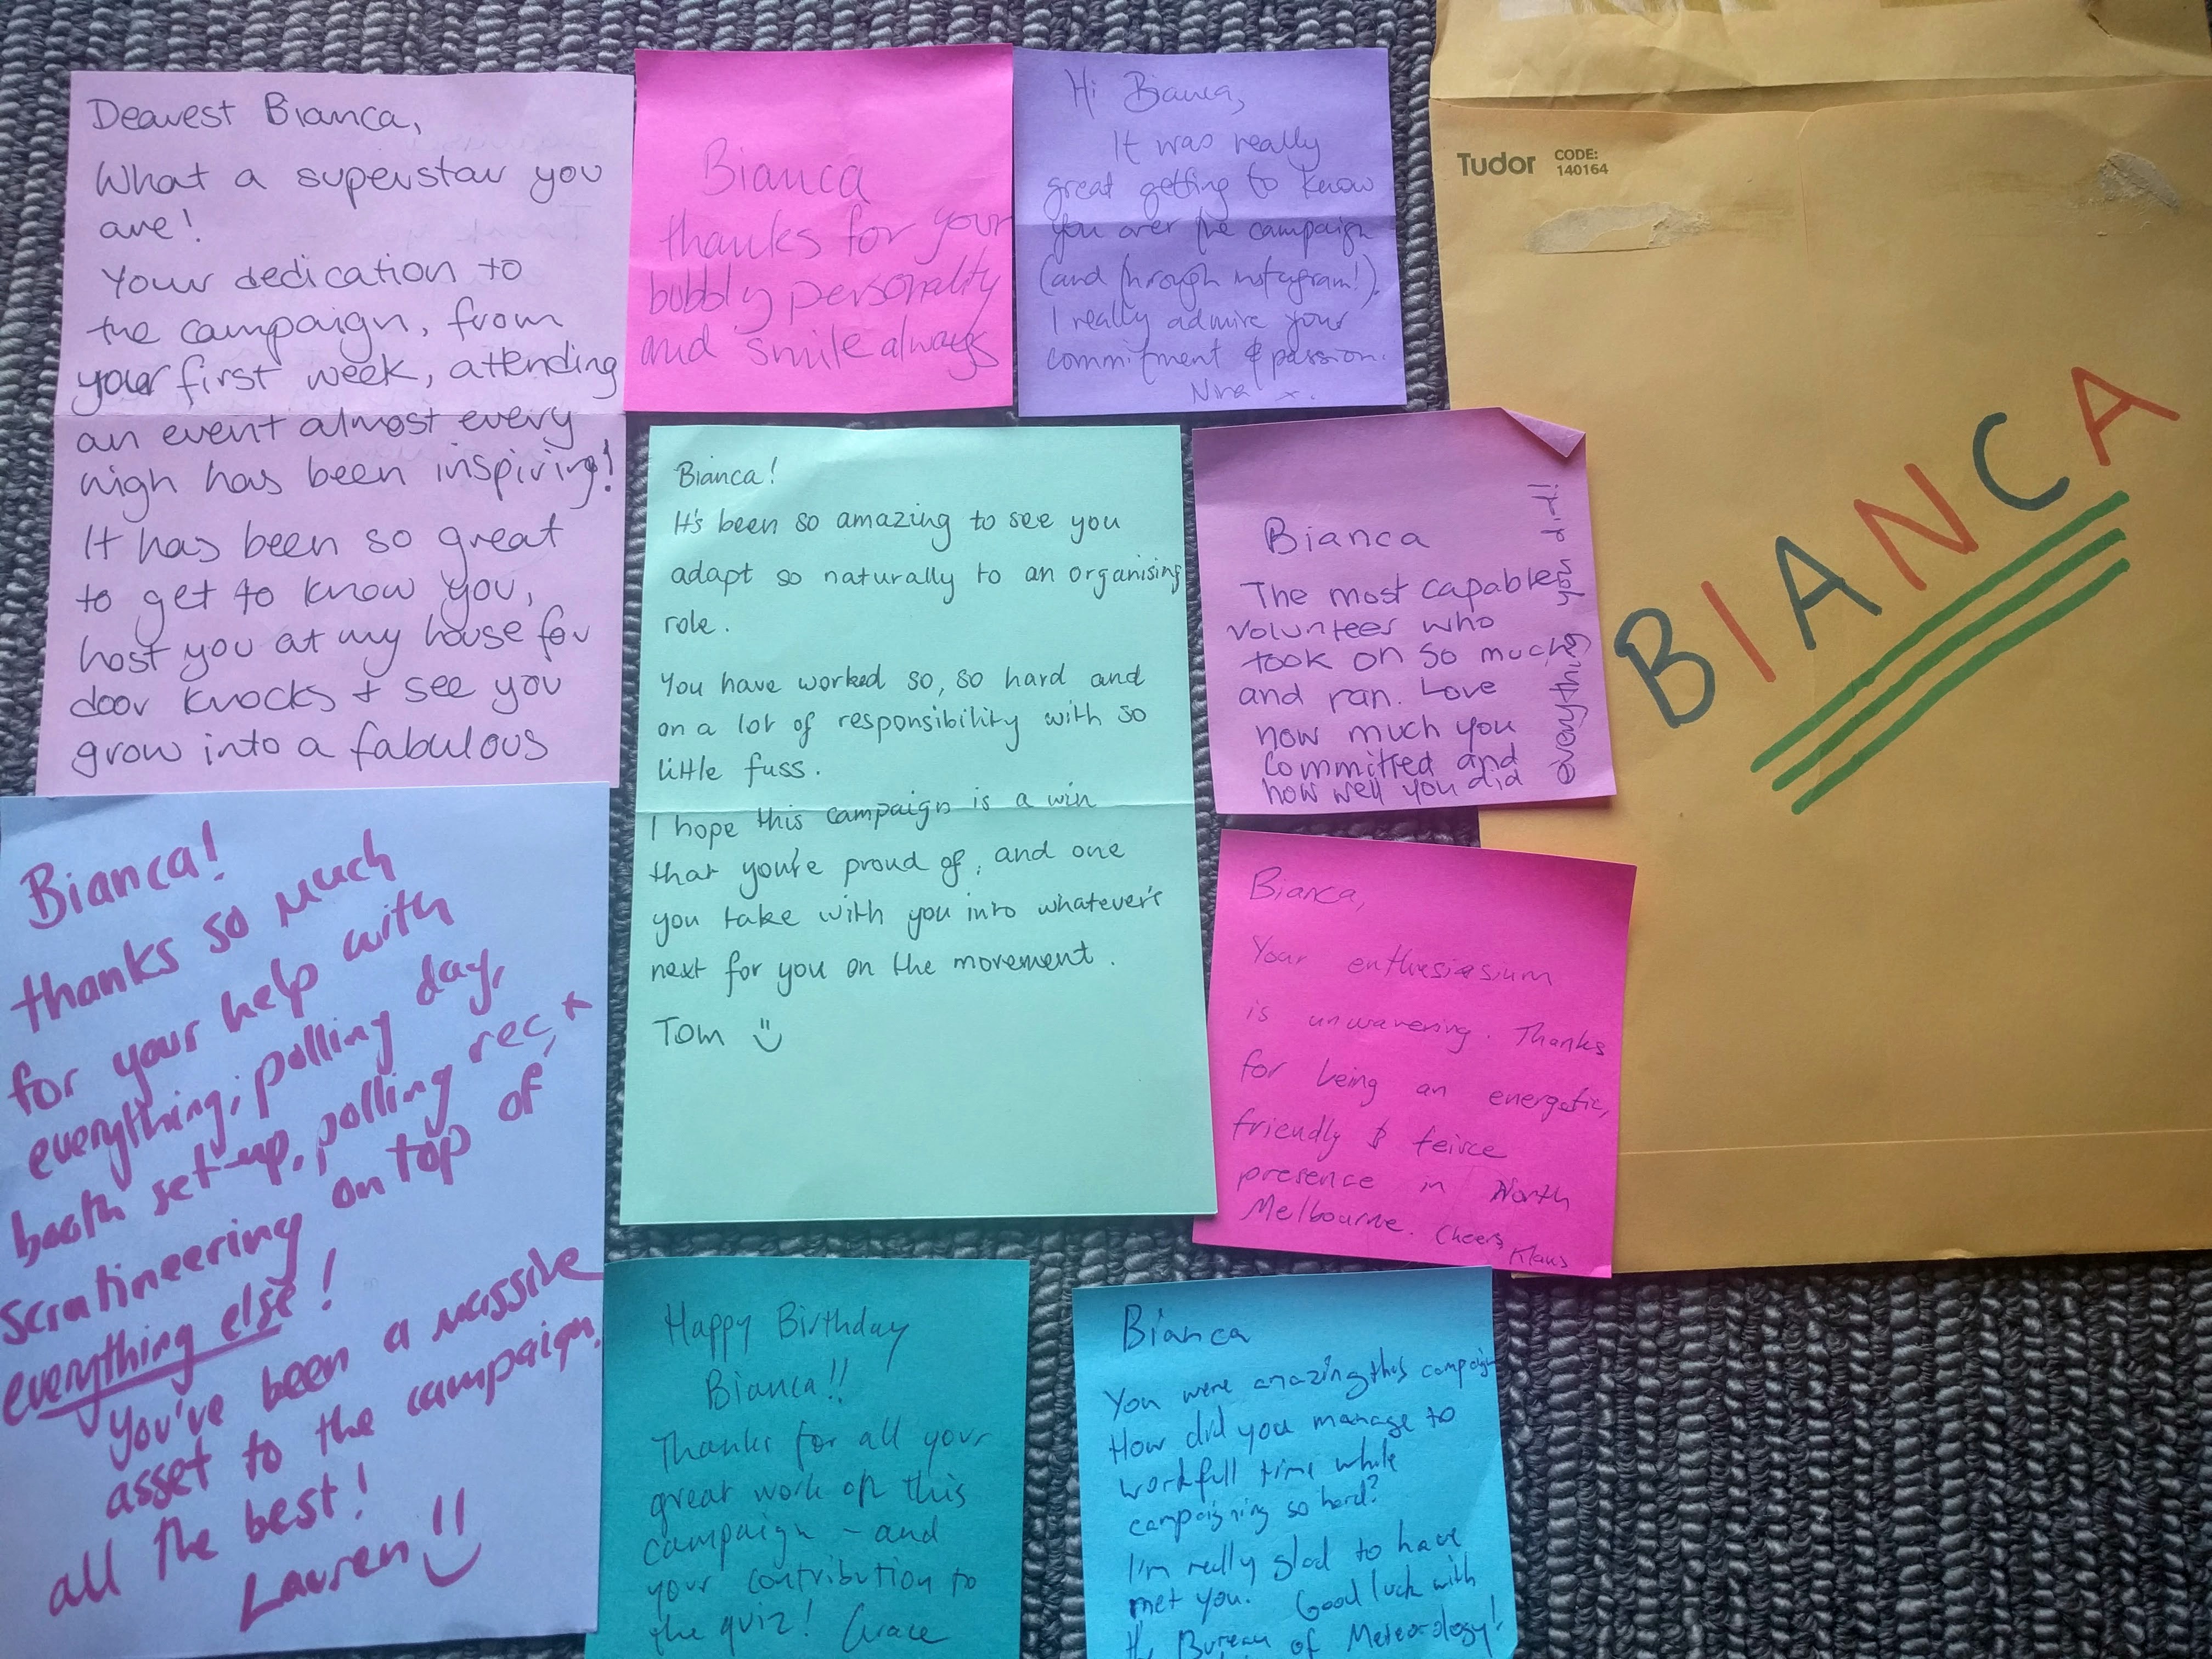 Dearest Bianca,
What a superstar you
are!
Your dedication to
the campaign, from
your first week, attending
an event almost every
nigh has been inspiring!
It has been so great
to get to know you,
host you at my house for
door knocks + see you
grow into a fabulous
Bianca
thanks for your
bubbly personality
and smile always
Hi Bianca,
It was really
great getting to know
you over the campaign
(and through instagram!).
I really admire your
commitment & passion.
Nina x.
Tudor CODE:
140164
BIANCA
Bianca!
It's been so amazing to see you
adapt so naturally to an organising
role.
You have worked so, so hard and
on a lot of responsibility with so
little fuss.
I hope this campaign is a win
that you're proud of, and one
you take with you into whatever's
next for you on the movement.
Tom
Bianca
The most capable
volunteer who
took on so much
and ran. Love
how much you
committed and
how well you did
everything you did!
Bianca,
Your enthusiasium
is unwavering. Thanks
for being an energetic,
friendly & feirce
presence in North
Melbourne. Cheers, Klaus
Bianca!
thanks so much
for your help with
everything; polling day,
booth set-up, polling rec, +
scrutineering on top of
everything else!
You've been a massive
asset to the campaign.
all the best!
Lauren
Happy Birthday
Bianca!!
Thanks for all your
great work on this
campaign - and
your contribution to
the quiz! Grace
Bianca
You were amazing this campaign
How did you manage to
work full time while
campaigning so hard?
I'm really glad to have
met you. Good luck with
the Bureau of Meteorology!